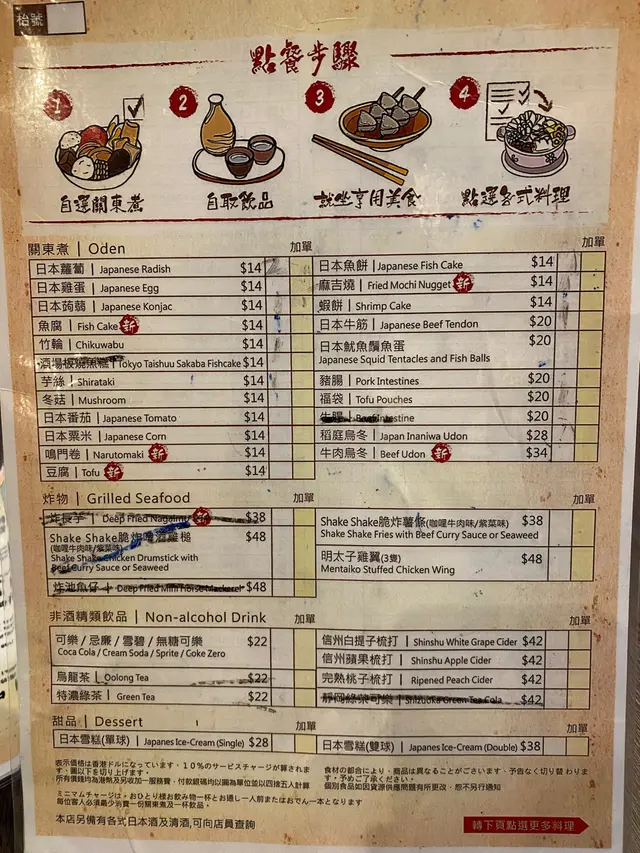 枱號
點餐步驟
1 2 3 4
自選關東煮 自取飲品 就坐享用美食 點選各式料理
關東煮 | Oden 加單 加單
日本蘿蔔 | Japanese Radish $14
日本雞蛋 | Japanese Egg $14
日本蒟蒻 | Japanese Konjac $14
魚腐 | Fish Cake 新 $14
竹輪 | Chikuwabu $14
酒場板燒魚糕 | Tokyo Taishuu Sakaba Fishcake $14
芋絲 | Shirataki $14
冬菇 | Mushroom $14
日本番茄 | Japanese Tomato $14
日本粟米 | Japanese Corn $14
鳴門卷 | Narutomaki 新 $14
豆腐 | Tofu 新 $14
日本魚餅 | Japanese Fish Cake $14
麻吉燒 | Fried Mochi Nugget 新 $14
蝦餅 | Shrimp Cake $14
日本牛筋 | Japanese Beef Tendon $20
日本魷魚鬚魚蛋 $20
Japanese Squid Tentacles and Fish Balls
豬腸 | Pork Intestines $20
福袋 | Tofu Pouches $20
牛腸 | Beef Intestine $20
稻庭烏冬 | Japan Inaniwa Udon $28
牛肉烏冬 | Beef Udon 新 $34
炸物 | Grilled Seafood 加單 加單
炸長芋 | Deep Fried Nagaimo 新 $38
Shake Shake脆炸啤酒雞槌 $48
(咖喱牛肉味/紫菜味)
Shake Shake Chicken Drumstick with
Beef Curry Sauce or Seaweed
炸池魚仔 | Deep Fried Mini Horse Mackerel $48
Shake Shake脆炸薯條(咖喱牛肉味/紫菜味) $38
Shake Shake Fries with Beef Curry Sauce or Seaweed
明太子雞翼(3隻) $48
Mentaiko Stuffed Chicken Wing
非酒精類飲品 | Non-alcohol Drink 加單 加單
可樂 / 忌廉 / 雪碧 / 無糖可樂 $22
Coca Cola / Cream Soda / Sprite / Coke Zero
烏龍茶 | Oolong Tea $22
特濃綠茶 | Green Tea $22
信州白提子梳打 | Shinshu White Grape Cider $42
信州蘋果梳打 | Shinshu Apple Cider $42
完熟桃子梳打 | Ripened Peach Cider $42
靜岡綠茶可樂 | Shizuoka Green Tea Cola $42
甜品 | Dessert 加單 加單
日本雪糕(單球) | Japanes Ice-Cream (Single) $28
日本雪糕(雙球) | Japanes Ice-Cream (Double) $38
表示価格は香港ドルになっています、10%のサービスチャージが算されます、圓以下を切り上げます。
所有價錢均為港幣及另收加一服務費，付款銀碼均以圓為單位並以四捨五入計算
ミニマムチャージは、おひとり樣お飲み物一杯とお通し一人前またはおでん一本となります
每位客人必須最少消費一份關東煮及一杯飲品。
食材の都合により、商品は異なることがございます、予告なく切り替わります、予めご了承ください。
個別食品如因貨源供應問題有所更改，恕不另行通知
本店另備有各式日本酒及清酒,可向店員查詢
轉下頁點選更多料理